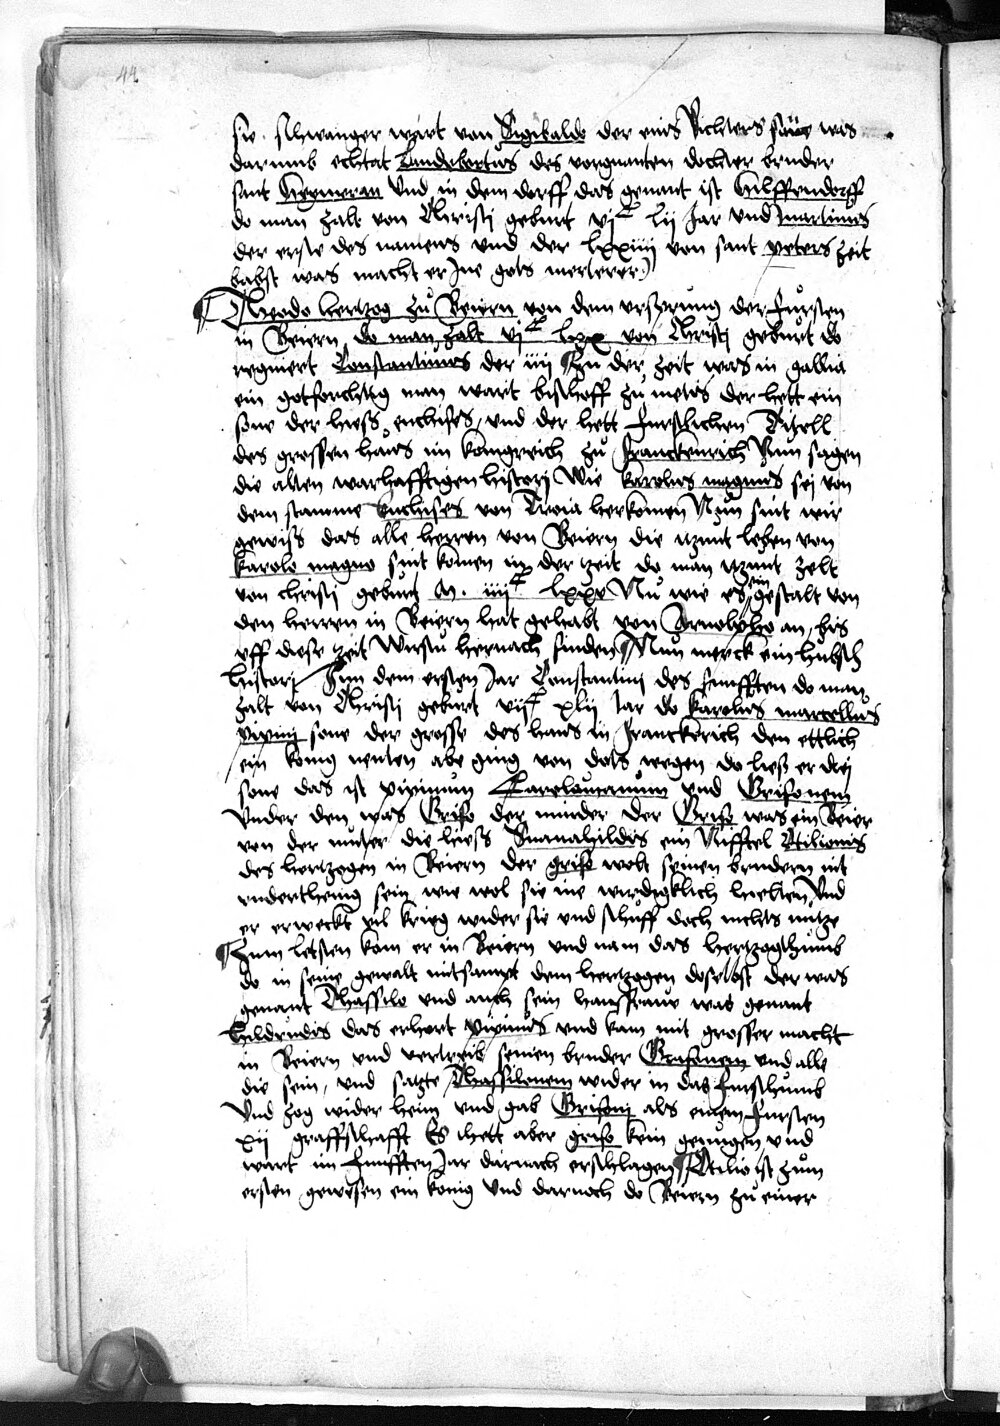 44
sie schwanger wart von Sigibaldo der eins Richters sun was
darumb echtat Landebertus des vorgnanten dochter bruder
sant Heymeran Und in dem dorff das genant ist Hilffendorff
do man zalt von Christi geburt vjᶜ lij Jar und martinus
der erste des namens und der lxxiiij von sant peters zeit
babst was macht er Jne gots merterer
Theodo hertzog zů Beiern von dem ursprung der Fursten
in Beiern do man zalt vjᶜ lxx von Christi geburt do
regniert Constantinus der iiij Zu der zeit was in gallia
ein gotforchtig man wart bischoff zů metis der hett ein
sone der hiess enchises, und der hett furstlichen Titell
des grossen haws im königreich zů franckenrich Nun sagen
die alten warhafftigen histori Wie karolus magnus sei von
dem stamme Enchises von Troia herkomen Nun sint wir
gewiss das alle herren von Beiern die itzunt leben von
karolo magno sint komen in der zeit do man itzunt zelt
von christi geburt M. iiijᶜ lxxx Nu wie es ein gestalt von
den herren in Beiern hat gehabt von Arnolpho an, bis
uff diese zeit Wirstu hernach finden Nun merck ein hubsch
histori Jnn dem ersten Jar Constantini des funfften do man
zalt von Christi geburt vijᶜ xlij Jar do karolus martellus
pipini sone der grosse des haws in Franckerich den ettlich
ein konig nenten abe ging von dots wegen do liess er drei
sone das ist pipinum Karolomannum und Grifonem
Under den was Grifo der minder der Grifo was ein Beier
von der muter die hiess Suanahildis ein Nifftel Otilionis
des hertzogen in Beiern der grifo wolt seinen brudern nit
underthenig sein wie wol sie ine wirdigklich hielten Und
er erweckt vil krieg wider sie und schuff doch nichts nutze
Zum letsten kom er in Beiern und nam das hertzogthumb
do in seine gewalt mitsampt dem hertzogen doselbst der was
genant Thassilo und auch sein hausfrauw was genant
hildrudis das erhort pipinus und kam mit grosser macht
in Beiern und vertreib seinen bruder Grifonem und alle
die sein, und satzte Thassilonem wider in das furstthumb
Und zog wider heim und gab Grifoni als einem Fursten
xij graffschafft Es hett aber grifo kein genugen und
wart im funfften Jar darnach erschlagen Otilio ist zum
ersten gewesen ein konig Und darnach do Beiern zů einer